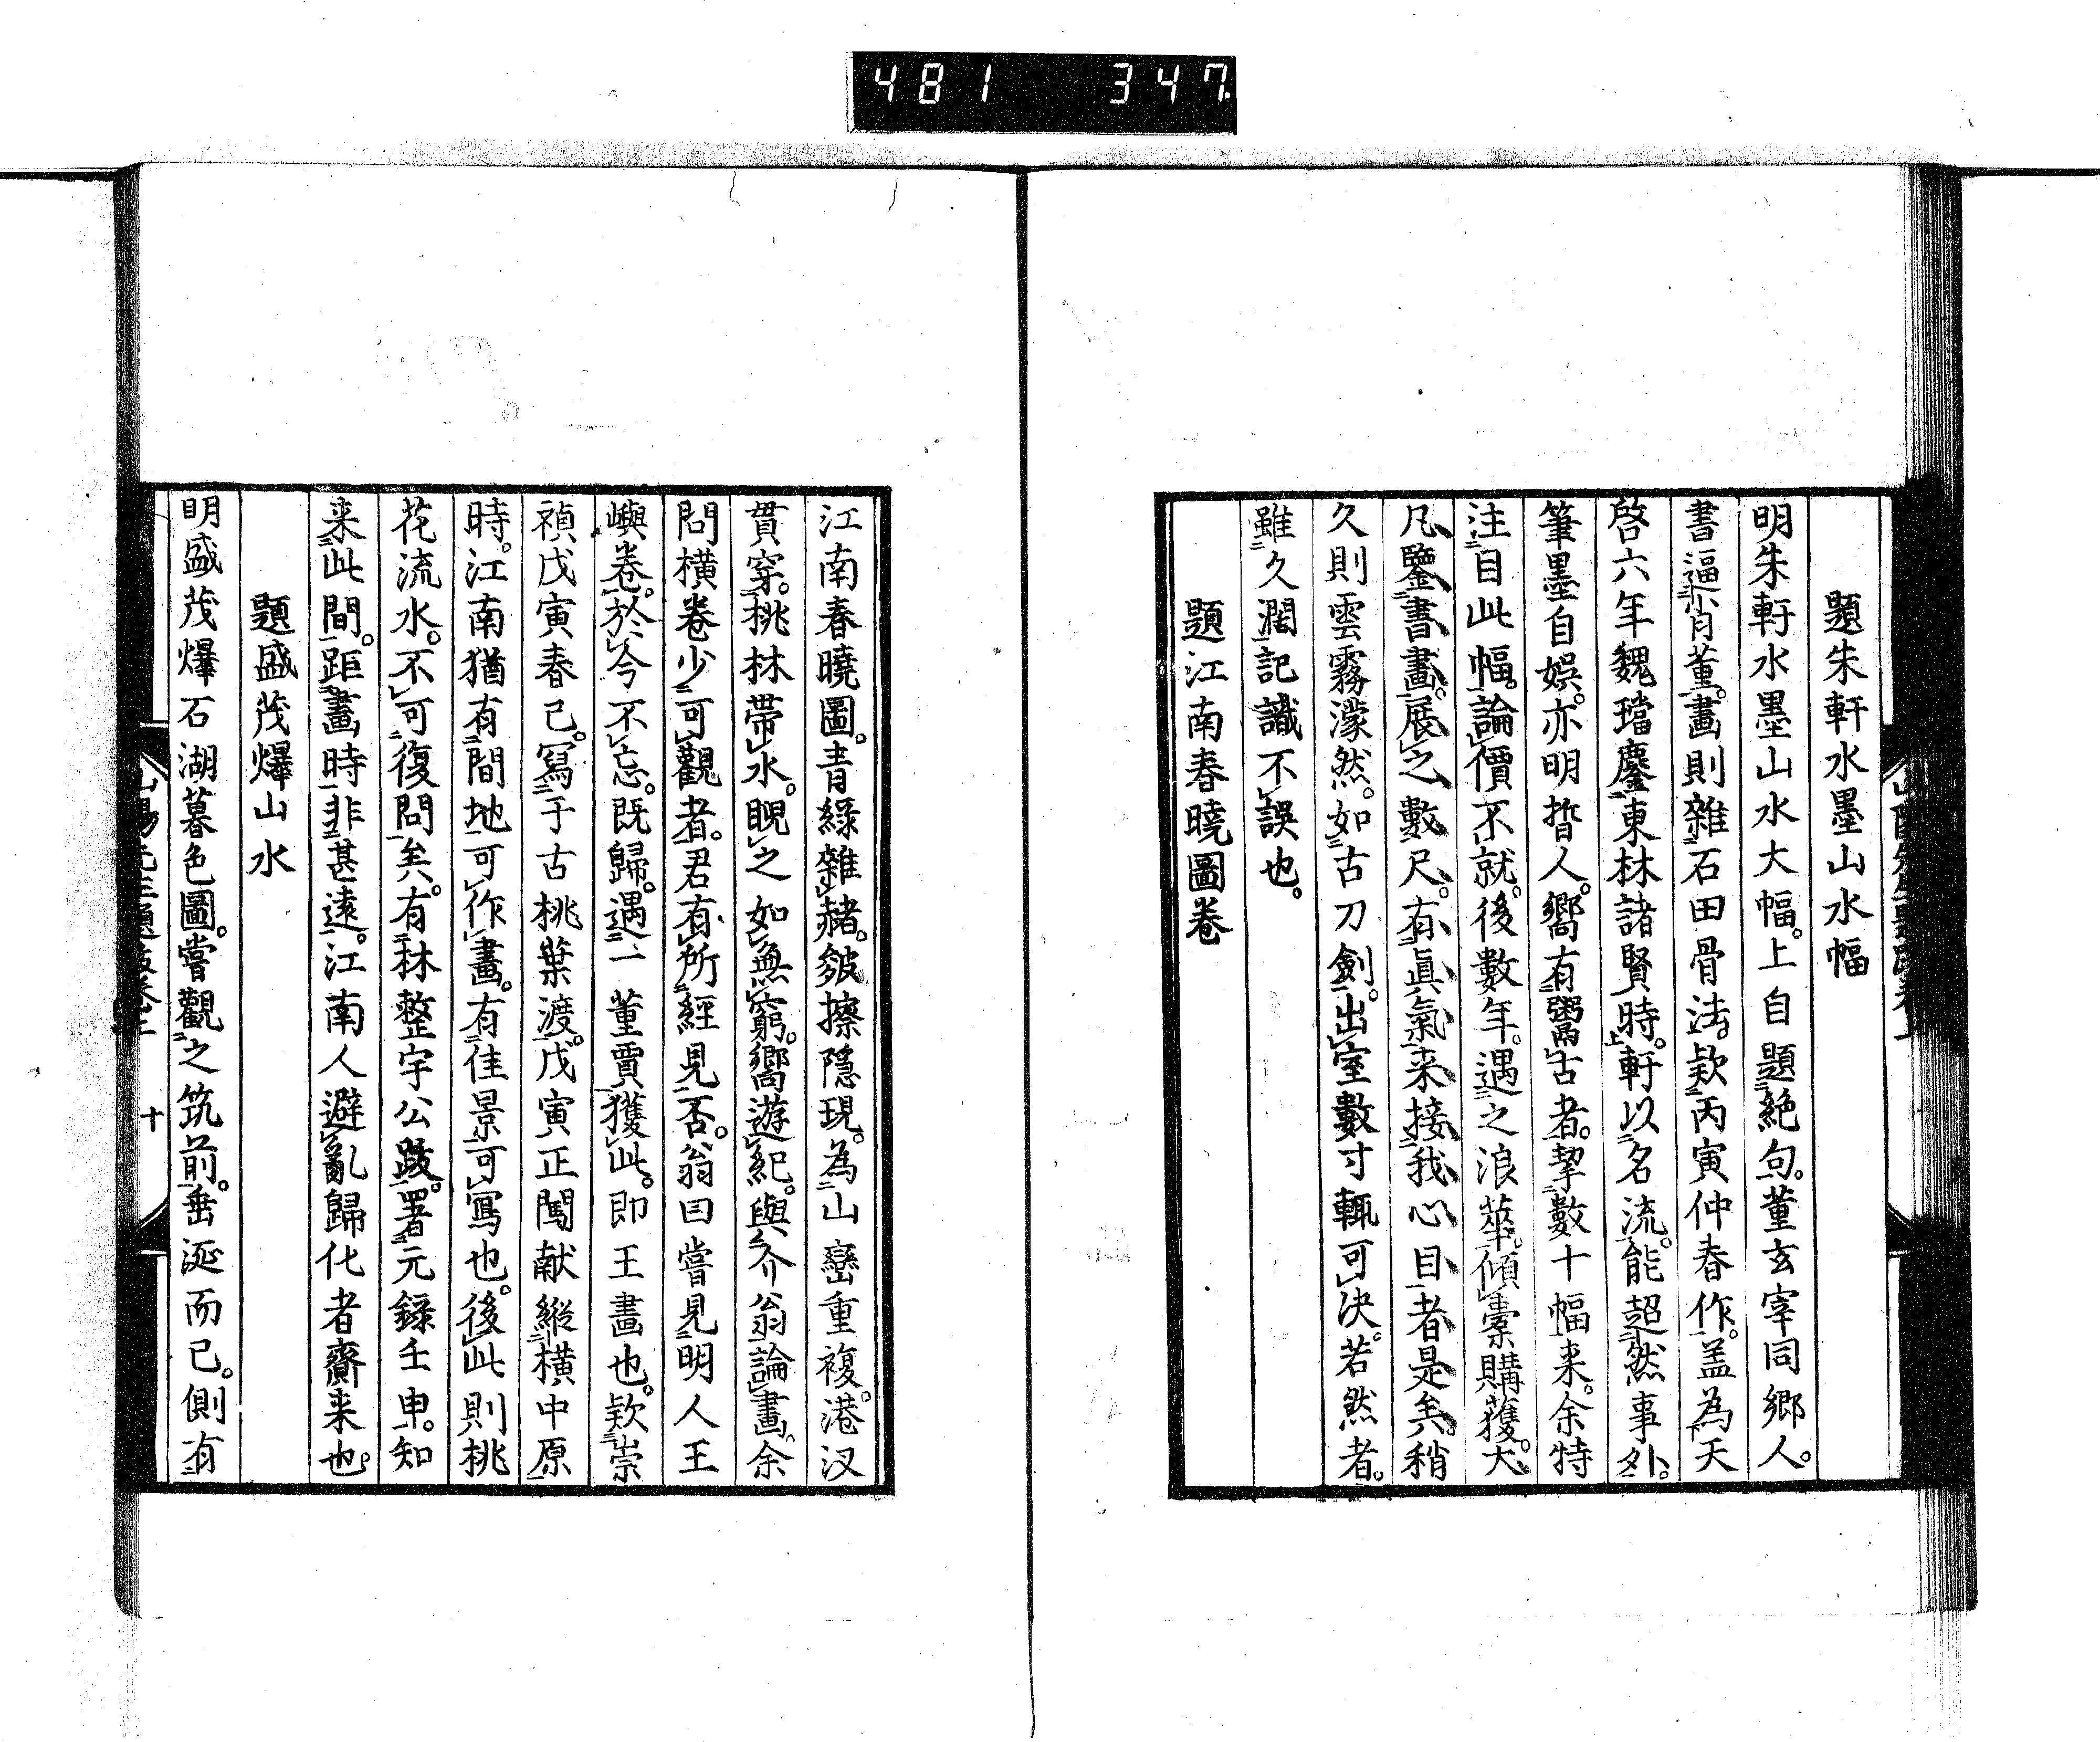 481 347
題朱軒水墨山水幅
明朱軒水墨山水大幅。上自題絶句。董玄宰同郷人。
書逼肖董。畫則雜石田骨法。欵丙寅仲春作。盖為天
啓六年魏璫鏖東林諸賢時。軒以名流。能超然事外。
筆墨自娯。亦明哲人。嚮有鬻古者。挈數十幅来。余特
注目此幅。論價不就。後數年。遇之浪華。傾橐購獲。大
凡鑒書畫。展之數尺。有眞氣来接我心目者是矣。稍
久則雲霧濛然。如古刀劍。出室數寸輒可决。若然者。
雖久濶記識不誤也。
題江南春曉圖卷
江南春曉圖。青緑雜赭。皴擦隠現。為山巒重複。港汊
貫穿。桃林帶水。睨之如無窮。嚮遊紀。與介翁論畫。余
問横卷少可觀者。君有所經見否。翁曰嘗見明人王
嶼卷。於今不忘。既歸。遇一董賈獲此。即王畫也。欵崇
禎戊寅春已。寫于古桃葉渡。戊寅正闖献縦横中原
時。江南猶有間地可作畫。有佳景可寫也。後此則桃
花流水。不可復問矣。有林整宇公跋。署元録壬申。知
来此間。距畫時非甚遠。江南人避亂歸化者齎来也。
題盛茂爗山水
明盛茂爗石湖暮色圖。嘗觀之筑前。垂涎而已。側有
十